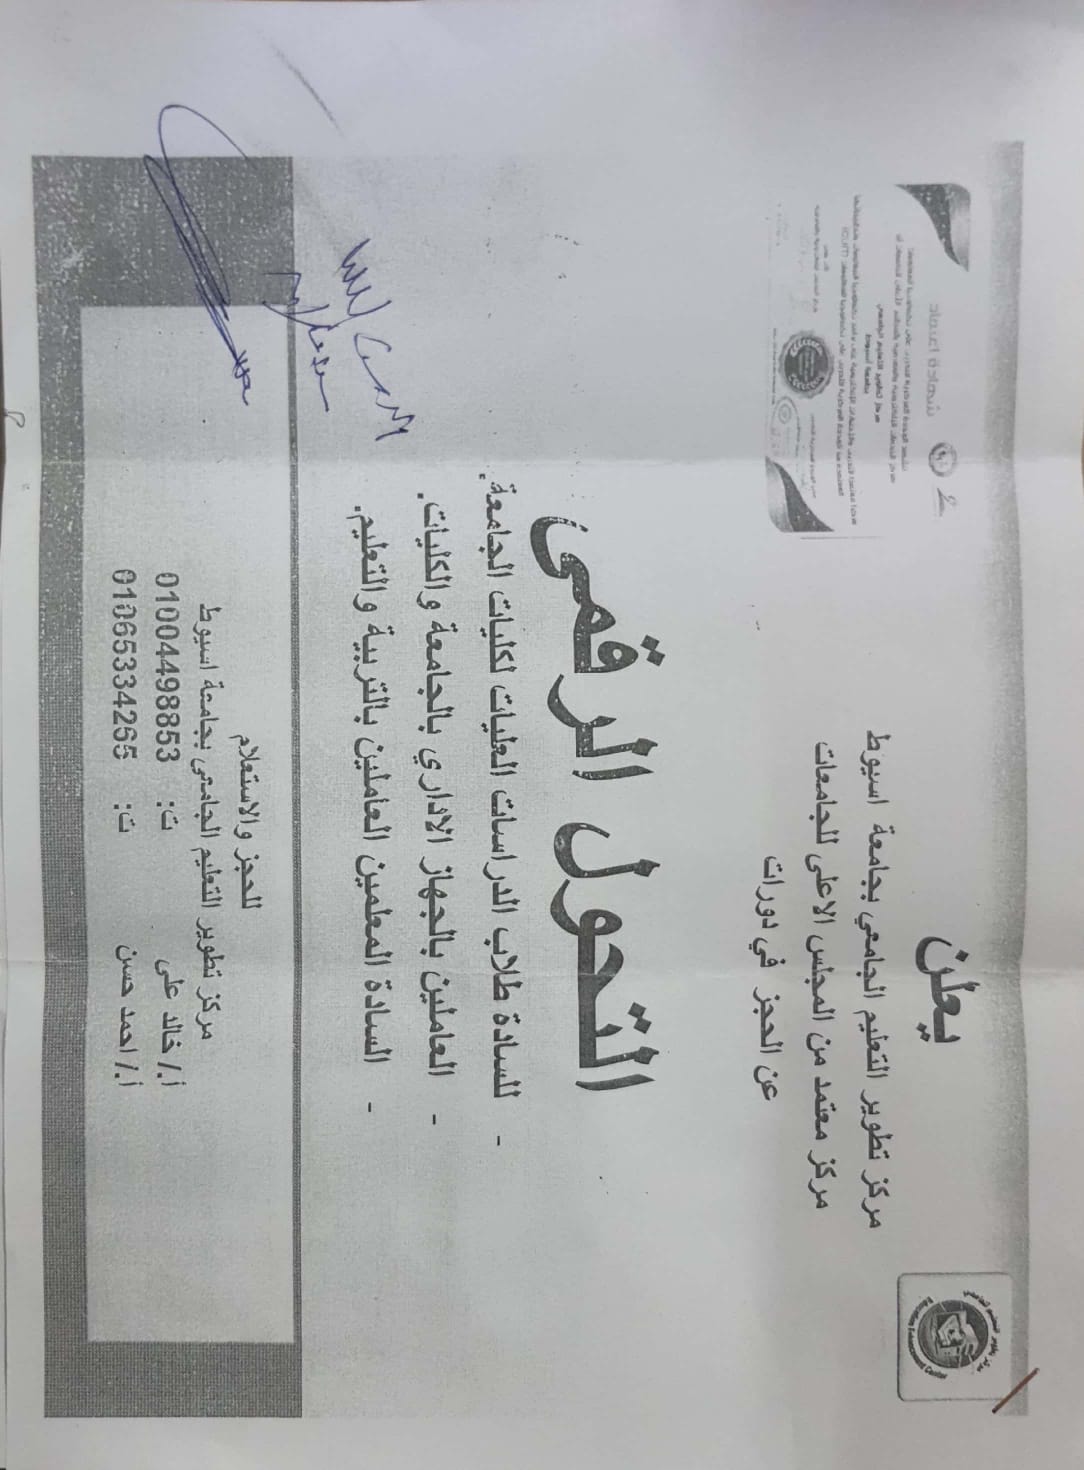 يعلن
مركز تطوير التعليم الجامعي بجامعة اسيوط
مركز معتمد من المجلس الاعلى للجامعات
عن الحجز في دورات
التحول الرقمى
- للسادة طلاب الدراسات العليات لكليات الجامعة.
- العاملين بالجهاز الاداري بالجامعة والكليات.
- السادة المعلمين العاملين بالتربية والتعليم.
للحجز والاستعلام
مركز تطوير التعليم الجامعى بجامعة اسيوط
أ./ خالد على ت: 01004498853
أ./ احمد حسن ت: 01065334265
شهادة اعتماد
مركز تطوير التعليم الجامعي
جامعة أسيوط